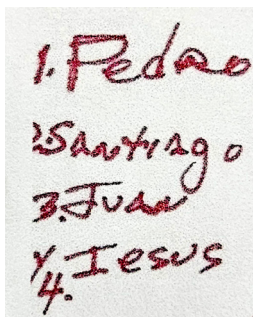 1. Pedro
2. Santiago
3. Juan
y
4. Jesus